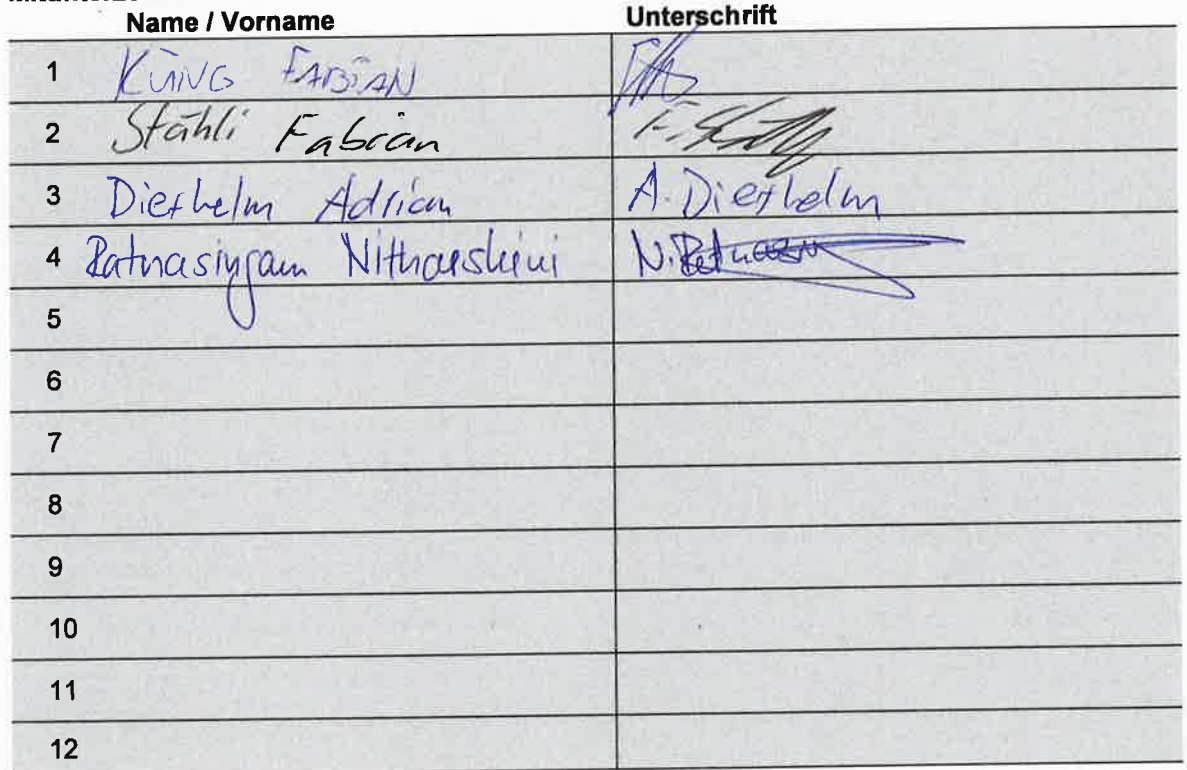 Name / Vorname Unterschrift
1 KÜNG FABIAN
2 Stähli Fabian
3 Diethelm Adrian A. Diethelm
4 Ratnasingam
5
6
7
8
9
10
11
12